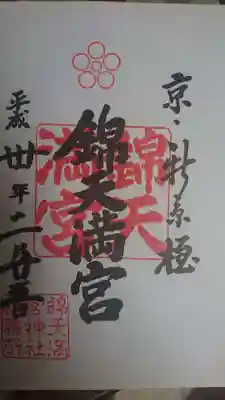 京・新京極
錦天満宮
平成丗年二月廿五日
錦天
満宮
錦天満
宮神社